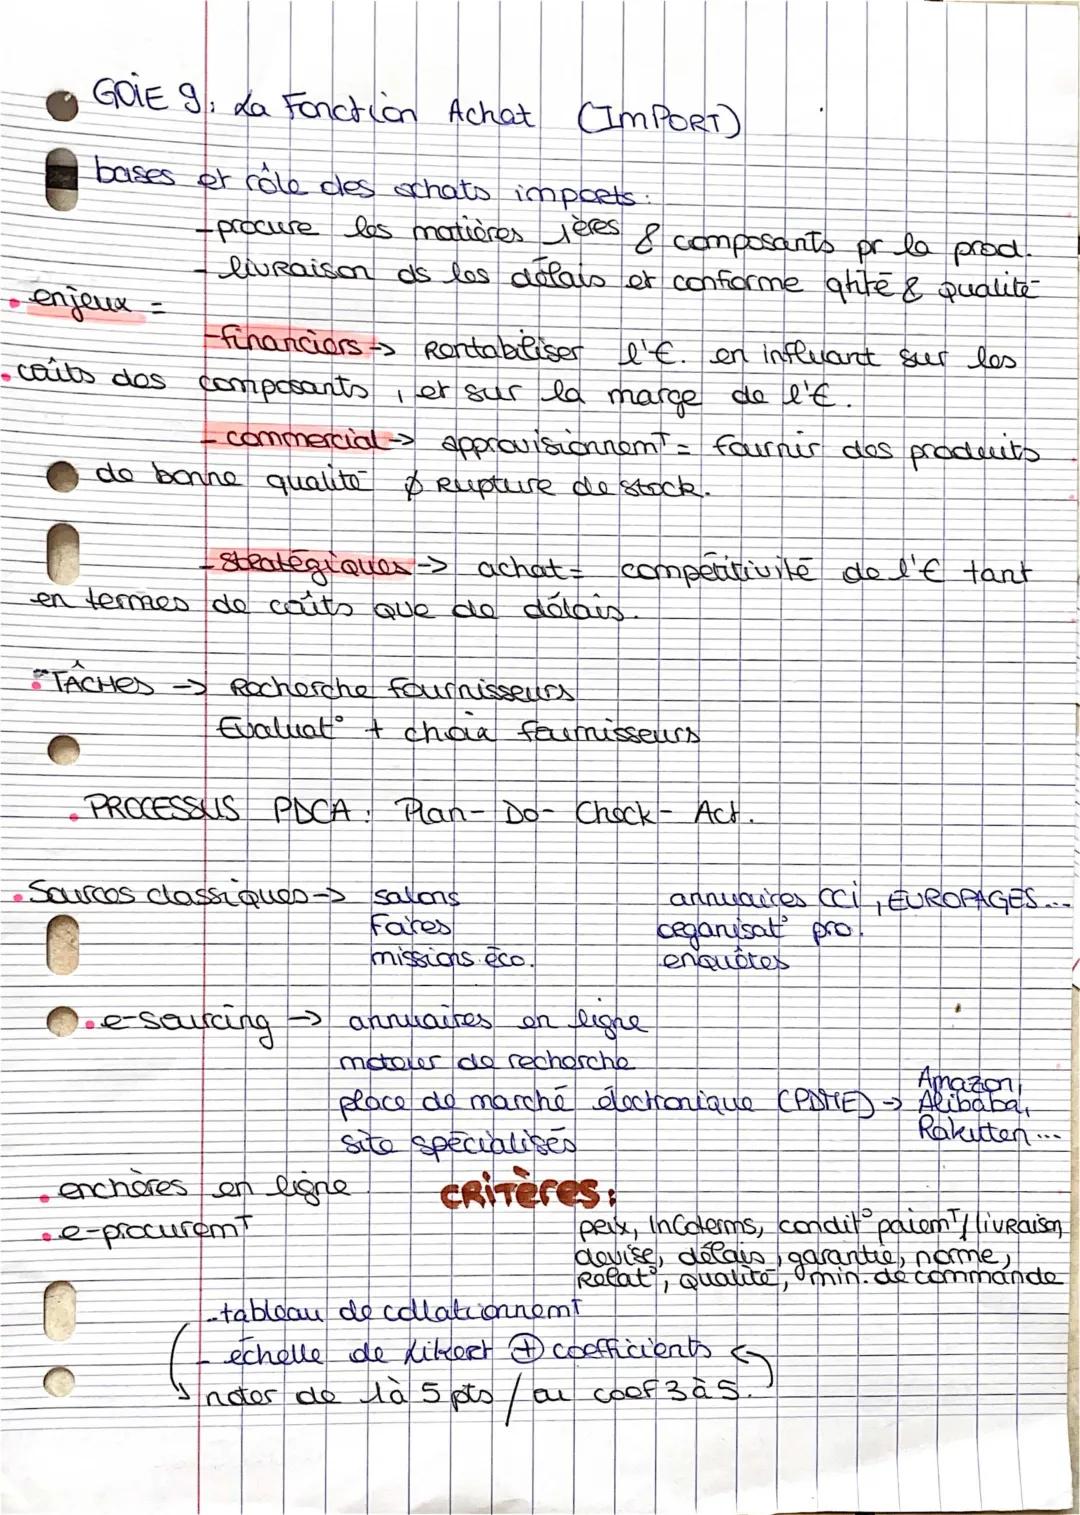 GOIE 9: La Fonction Achat (IMPORT)
bases et rôle des achats imports:
- procure les matières 1ères & composants pr la prod.
- livraison ds les délais et conforme qtité & qualité
• enjeux =
- financiers → Rentabiliser l'€. en influant sur les
• coûts des composants, et sur la marge de l'€.
- commercial → approvisionnemT = fournir des produits
de bonne qualité ∅ Rupture de stock.
- stratégiques → achat = compétitivité de l'€ tant
en termes de coûts que de délais.
• TÂCHES → Recherche fournisseurs
Evaluat° + choix fournisseurs
• PROCESSUS PDCA: Plan - Do - Check - Act.
• Sources classiques → salons annuaires CCi, EUROPAGES...
Foires organisat° pro.
missions éco. enquêtes
• e-sourcing → annuaires en ligne
moteur de recherche
place de marché électronique (PDME) → Amazon, Alibaba, Rakuten...
site spécialisés
• enchères en ligne CRITÈRES:
• e-procuremT prix, Incoterms, condit° paiemT/livraison,
devise, délais, garantie, norme,
Relat°, qualité, min. de commande
- tableau de collationnemT
- échelle de Likert ⊕ coefficients ↩
↳ noter de 1 à 5 pts / ou coef 3 à 5.